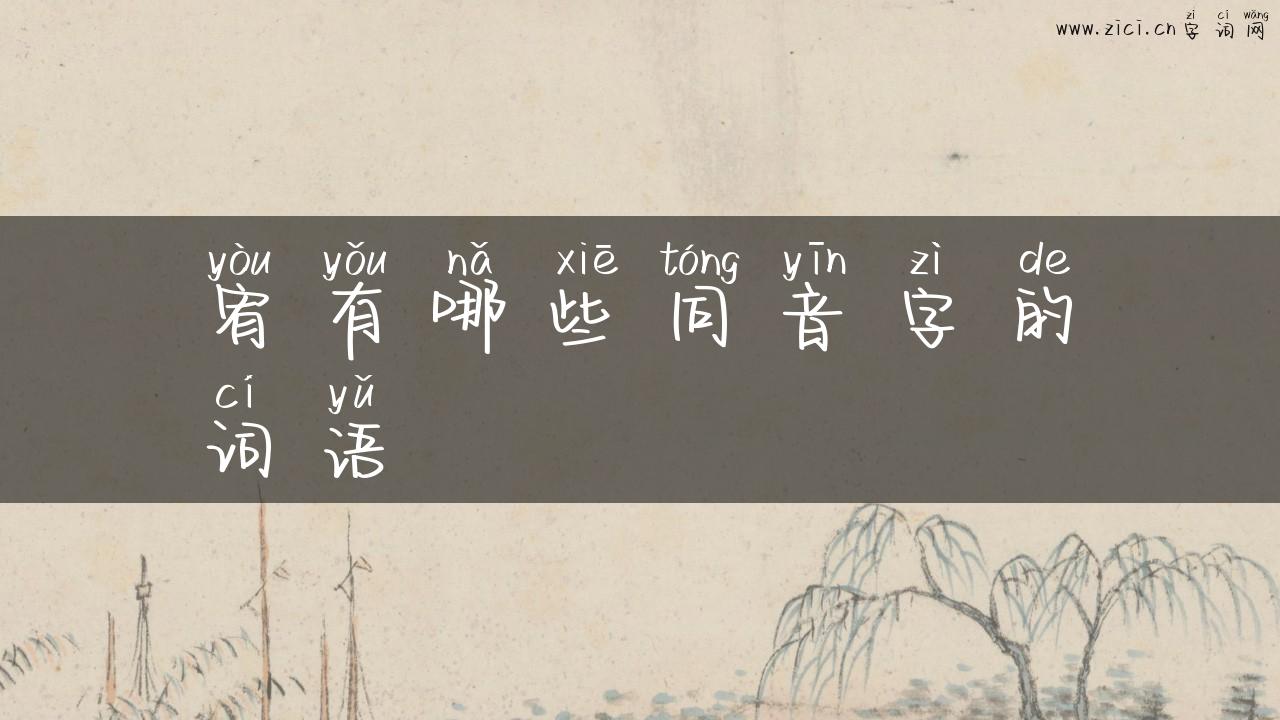 zì cí wǎng
www.zici.cn 字 词 网
yòu yǒu nǎ xiē tóng yīn zì de
宥 有 哪 些 同 音 字 的
cí yǔ
词 语